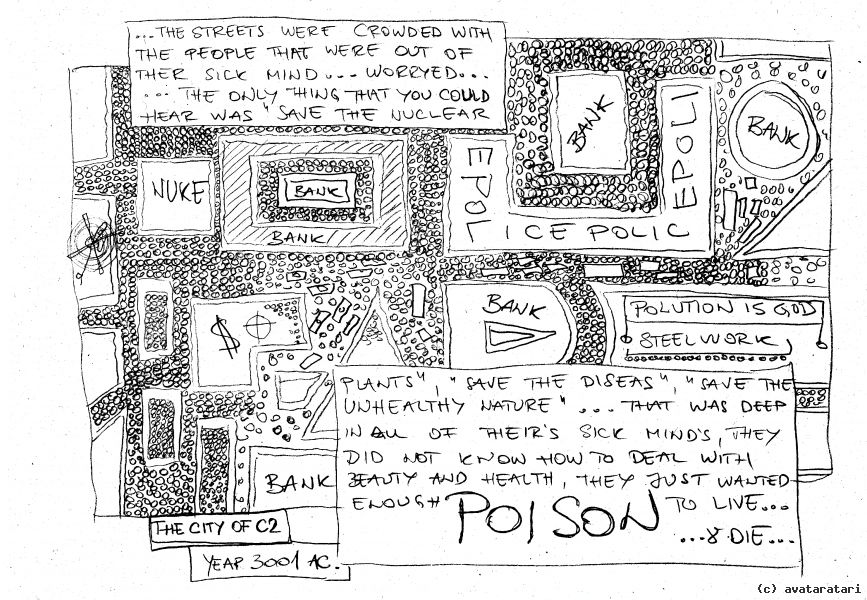 ...THE STREETS WERE CROWDED WITH
THE PEOPLE THAT WERE OUT OF
THER SICK MIND... WORRYED...
... THE ONLY THING THAT YOU COULD
HEAR WAS "SAVE THE NUCLEAR
BANK
BANK
NUKE
BANK
BANK
EPOL
ICE POLIC
EPOLI
$
BANK
POLUTION IS GOD
STEELWORK
BANK
PLANTS", "SAVE THE DISEAS", "SAVE THE
UNHEALTHY NATURE" ... THAT WAS DEEP
IN ALL OF THEIR'S SICK MIND'S, THEY
DID NOT KNOW HOW TO DEAL WITH
BEAUTY AND HEALTH, THEY JUST WANTED
ENOUGH POISON TO LIVE...
...& DIE...
THE CITY OF C2
YEAR 3001 AC.
(c) avataratari